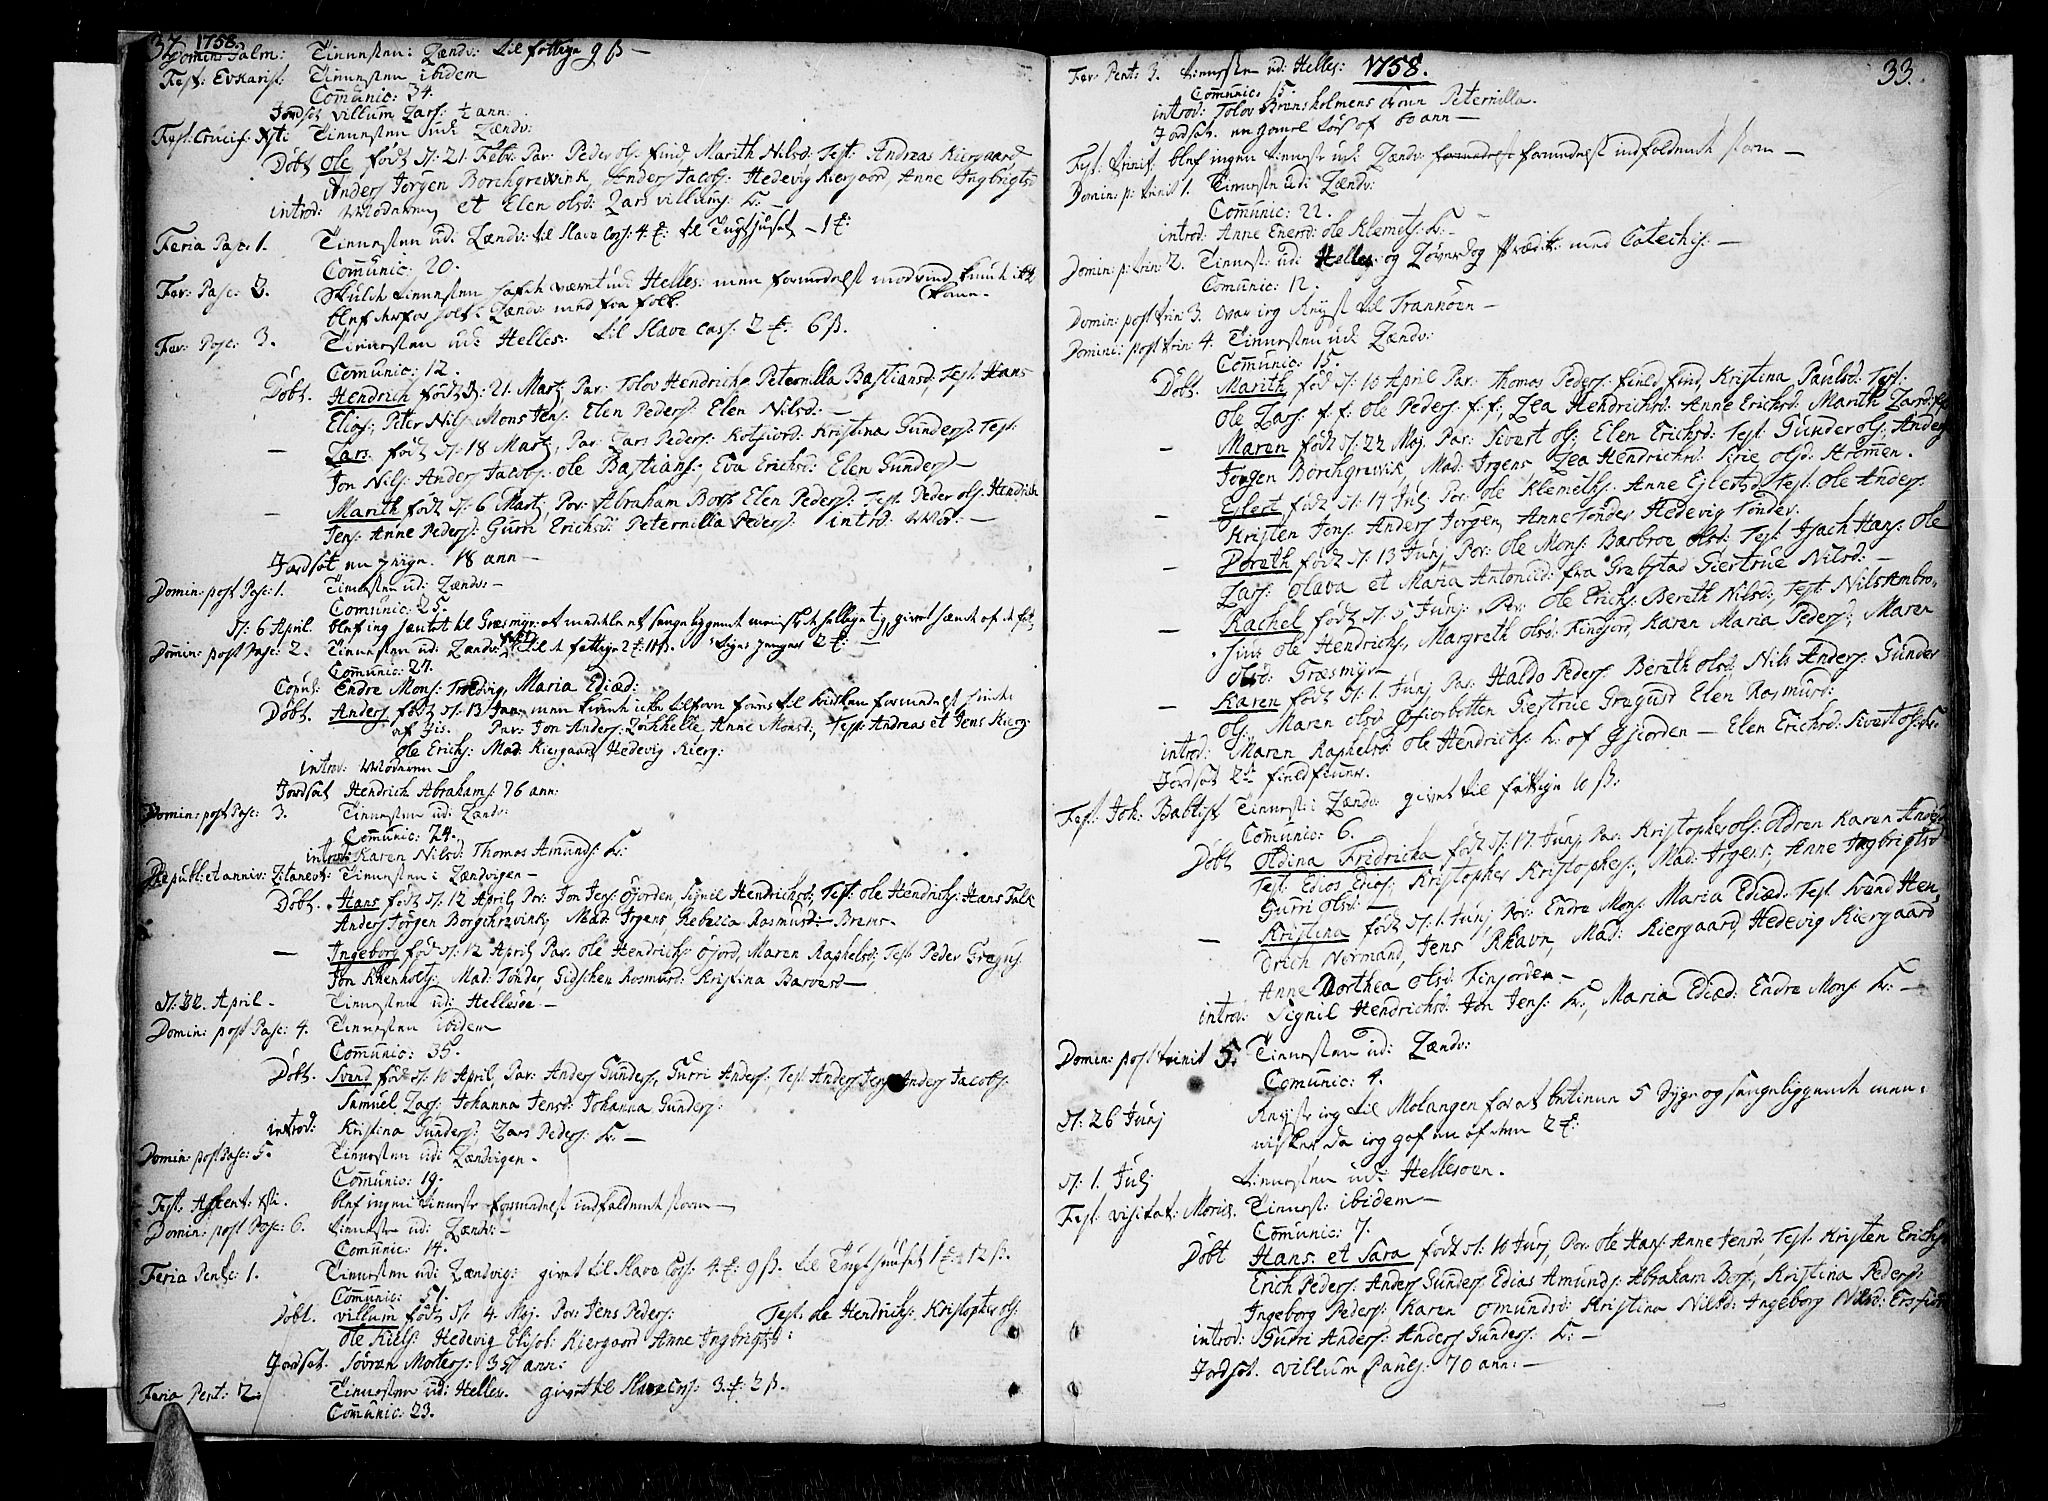 32 1758.
Domin: Palm: Tienesten: Lændv: til fattige 9 ß —
Fest: Evkarist: Tienesten ibidem
Comunic: 34.
Jordsat Villum Lars: ½ ann:
Fest: Crucif: Xsti Tienesten udi Lændv:
Døbt Ole født d: 21 Febr: Par: Peder Ols: find, Marith Nilsd: Test: Andreas Kiergaard
Anders Jørgen Borchgrevink, Anders Jacobs: Hedevig Kiergaard, Anne Ingbrigtsd
introd: Moderen et Elen Olsd: Lars Villums: K: —
Feria Pasc: 1. Tienesten ud: Lændv: til Slave Cass: 4 : til Tugthuset — 1 :
Comunic: 20.
Fer: Pasc: 2. Skulde tienesten hafde været ud: Helles: men formedelst modvind kunde ikke
blef derfor holt i Lændv: med faa folk. komme.
Fer: Pasc: 3. Tienesten udi Helles: til Slave Cass: 2 : 6 ß.
Comunic: 12.
Døbt. Hendrich født d: 21 Martz, Par: Tolov Hendrichs, Peternilla Bastiansd; Test: Hans
Elias; Peter Nils; Mons Jens: Elen Peders: Elen Nilsd: —
— Lars født d: 18 Martz, Par: Lars Peders: Kristina Gunders: Test:
Jon Nils: Anders Jacobs: Ole Bastians; Eva Erichsd: Elen Gunders —
— Marith født d: 6 Martz, Par: Abraham Bors Elen Peders: Test: Peder Ols: Hendrich
Jens: Anne Peders: Gurri Erichsd: Peternilla Peders: introd: Mod: —
Jordsat en pige. 18 ann —
Domin: post Pasc: 1. Tienesten ud: Lændv: —
Comunic: 25.
D: 6 April. blef ieg hentet til Græsmyr: at meddele et sengeliggende menniske det hellige
Domin: post Pasc: 2. Tienesten ud: Lændv: til de fattige 2 : 11 ß.
Comunic: 27.
Copul: Endre Mons: Maria Ediæd:
Døbt. Anders født d: 13 Jan: men kunde icke tilforn føres til kirken formedelst
af Jis. Par: Jon Anders: Anne Monsd; Test: Andreas et Jens Kierg:
Ole Erichs: Mad: Kiergaard Hedevig Kierg:
introd: Moderen —
Jordsat Hendrich Abrahams: 76 ann:
Domin: post Pasc: 3. Tienesten ud: Lændv:
Comunic: 24.
introd: Karen Nilsd: Thomas Amunds: K:
Tienesten i Lændvigen —
Døbt. Hans født d: 12 April, Par: Jon Jens: Øjorden, Signil Hendrichsd; Test: Ole Hendrichs: Hans Falk
Anders Jørgen Borgchrevink, Mad: Irgens, Rebecca Rasmusd:
— Ingeborg født d: 12 April Par: Ole Hendrichs: Øjord, Maren Raphelsd; Test: Peder Gregus
Jon Rhenholts, Mad: Tønder Gidschen Rosmurd: Kristina Barosd —
D: 22. April. Tienesten ud: Hellesøe —
Domin: post Pasc: 4. Tienesten ibidem
Comunic: 35.
Døbt. Svend født d: 10 April, Par: Anders Gunders, Gurri Anders; Test: Anders Jens: Anders Jacobs:
Samuel Lars: Johanna Jensd: Johanna Gunders:
introd: Kristina Gunders: Lars Peders: K: —
Domin: post Pasc: 5. Tienesten udi Lændvigen.
Comunic: 19.
Fest: Ascent: Xti. blef ingen tieneste formedelst indfaldende storm —
Domin: post Pasc: 6. tieneste ud: Lændv: —
Comunic: 14.
Feria Pentc: 1. Tienesten ud: Lændvig: givet til Slave Cass: 4 : 9 ß. til Tugthuuset 1 : 12 ß.
Comunic: 51.
Døbt. Villum født d: 4 Maj. Par: Jens Peders: Test: Ole Hendrichs: Kristopher Ols:
Ole Niels: Hedevig Elisab: Kiergaard Anne Ingbrigtsd:
Jordsat. Søvren Morters: 35 ann:
Feria Pent: 2: Tienesten ud: Helles. givet til Slave Cass: 3 : 2 ß.
Comunic: 23.
1758. 33.
Fer: Pent: 3. tienesten ud: Helles:
Comunic: 15.
introd: Tolov Brensholmens kone Peternilla.
Jordsat. en gamel 60 ann —
Fest: trinit. blef ingen tieneste udi Lændv: formedelst indfaldende storm —
Domin: p: trinit 1. Tienesten udi Lændv:
Comunic: 22.
introd: Anne Enersd: Ole Klemets: K: —
Domin: p: trin: 2. Tienest: udi Helles: og Prædik: med Catechis: —
Comunic: 12.
Domin: post trin: 3. var ieg til Trannøen —
Domini: post trin: 4. Tienesten udi Lændv:
Comunic: 15.
Døbt. Marith født d: 10 April Par: Thomas Peders: find, Kristina Paulsd: Test:
Ole Lars: f: f: Ole Peders: f: f:, Lea Hendrichsd: Anne Erichsd: Marith Larsd:
— Maren født d: 22 Maj. Par: Sivert Ols; Elen Erichsd: Test: Gunder Ols; Anders
Jørgen Borchgrevink, Mad: Irgens Lea Hendrichsd: Sirie Olsd: Strømmen.
— Eylert født d: 14 Julj Par: Ole Klemeths: Anne Eylertsd Test: Ole Anders:
Kristen Jens: Anders Jørgen, Anne Tønder Hedevig Tønder:
— Dorath født d: 13 Junj Par: Ole Mons: Barbroe Olsd: Test: Isach Hans: Ole
Lars: Olava et Maria Antonid: fra Græbstad Giertrue Nilsd: —
— Rachel født d: 5 Junj: Par: Ole Erichs: Bereth Nilsd:, Test: Nils Ambro-
sius Ole Hendrichs, Margreth Olsd: Finfjord, Karen Maria Peders; Maren
Olsd: Græsmyr —
— Karen født d: 1. Junj Par: Haldo Peders: Bereth Olsd, Nils Anders: Gunder
Ols; Maren Olsd Giertrue Gregusd Elen Rosmurd:
introd: Maren Raphelsd: Ole Hendrichs: K: af Øjorden — Elen Erichsd: Sivert Ols: K:
Jordsat
Fest: Joh: Babtist Tienest: i Lændv: givet til fattige 10 ß.
Comunic: 6.
Døbt Oldina Fridricha født d: 17 Junj, Par: Kristopher Ols: Karen
Test: Edios Edios; Kristopher Kristophers:, Mad: Irgens, Anne Ingbrigtsd
Gurri Olsd: —
— Kristina født d: 1. Junj, Par: Endre Mons: Maria Ediæd: Test: Svend Hen-
drich Normand, Jens Rhavn, Mad: Kiergaard, Hedevig Kiergaard
Anne Dorthea Olsd: Finjorden —
introd: Signil Hendrichsd: Jon Jens: K:, Maria Ediæd: Endre Mons: K: —
Domin: post trinit 5. Tienesten ud: Lændv:
Comunic: 4.
D: 26 Junj Reyste ieg til Malangen for at betiene 5 Syge og sengeliggende men-
nisker da ieg gaf en af dem 2 :
D: 1. Julj tienesten udi Hellesøen.
Fest: visitat: Mariæ. Tienest: ibidem —
Comunic: 7.
Døbt Hans et Sara født d: 10 Junj, Par: Ole Hans: Anne Jensd, Test: Kristen Erichs
Erich Peders: Anders Gunders Edias Amunds: Abraham Bors, Kristina Peders:
Ingeborg Peders: Karen Omundsd: Kristina Nilsd: Ingeborg Nilsd:
introd: Gurri Anders: Anders Gunders: K: —
Jordsat. Villum Pauls: 70 ann: —